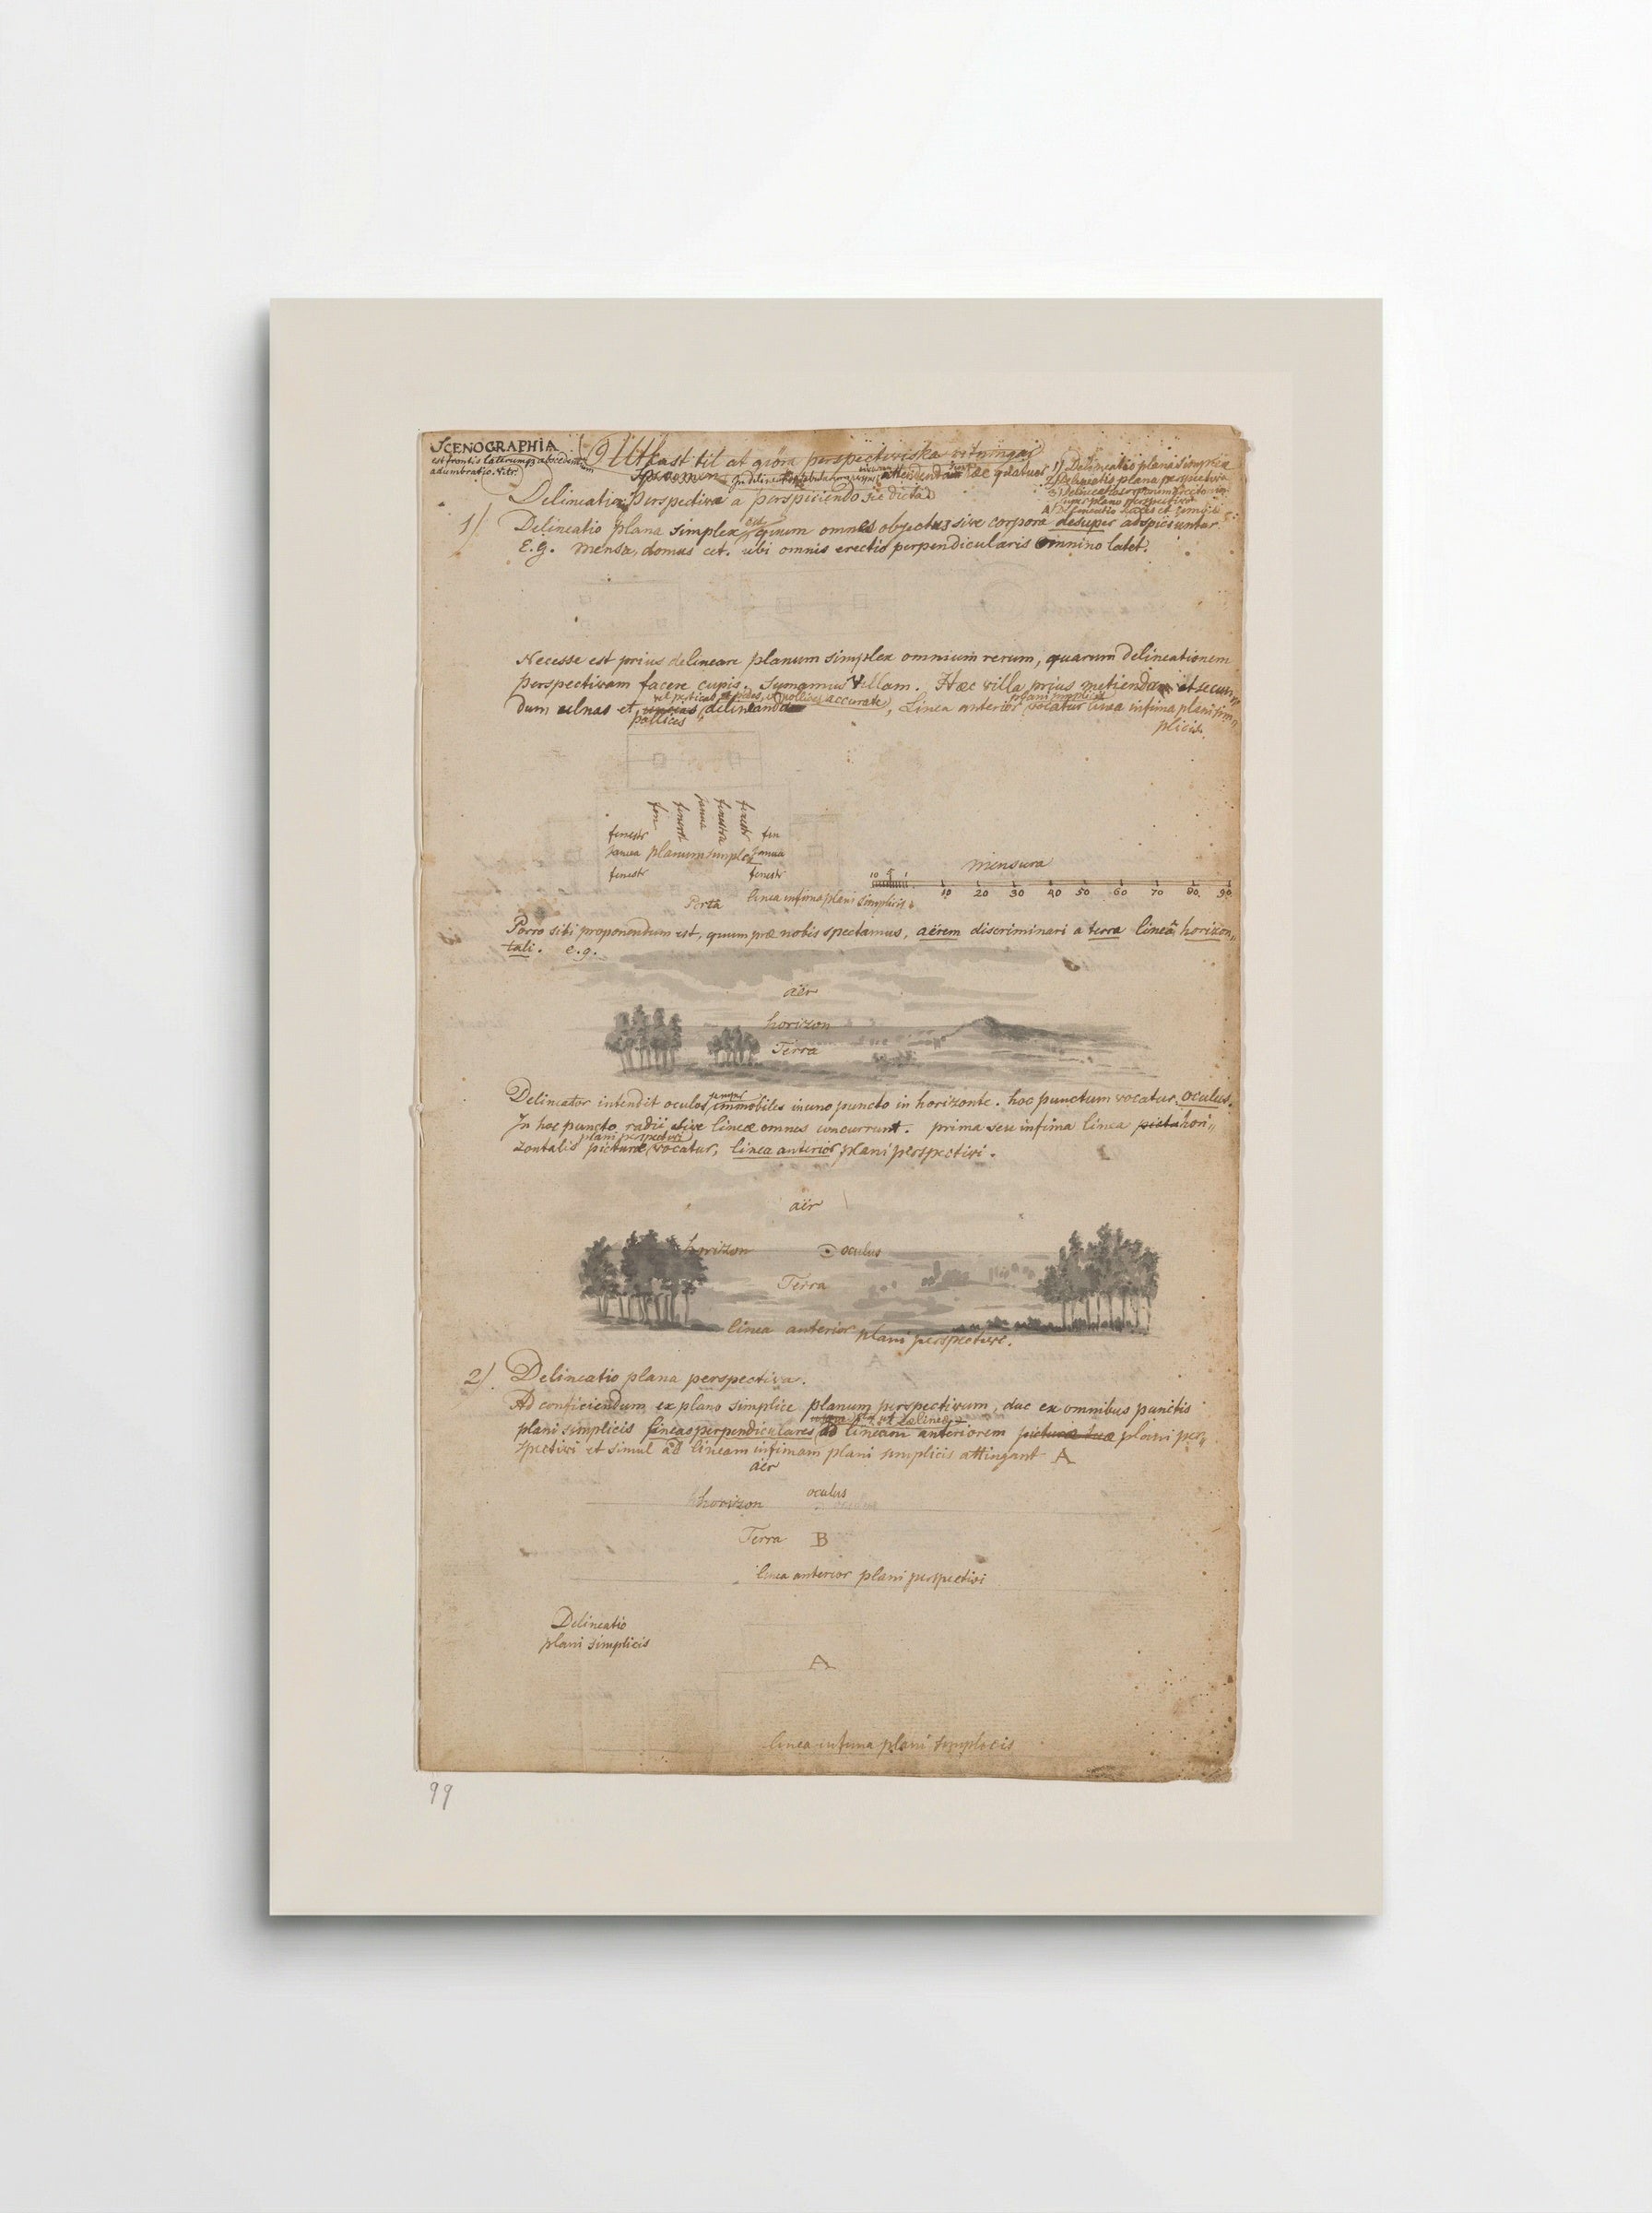 SCENOGRAPHIA
est frontis laterumq; abscedentium
adumbratio. Vitr.
Utkast til at giöra perspectiviska ritningar
Specimen attendendum ac quatuor
1) Delineatio plana simplex
2) Delineatio plana perspectiva
3) Delineatio
super plano perspectivo
4) Delineatio lucis et umbræ
Delineatio Perspectiva a perspiciendo sic dicta
1) Delineatio plana simplex est, quum omnes objectus sive corpora desuper adspiciuntur.
E.g. mensa, domus cet. ubi omnis erectio perpendicularis omnino latet.
Necesse est prius delineare planum simplex omnium rerum, quarum delineationem
perspectivam facere cupis. Sumamus Villam. Hæc villa prius metienda et secun
vel perticas et pedes, et pollices accurate plani simplicis
dum ulnas et uncias delineanda, Linea anterior vocatur linea infima plani sim
pollices
plicis.
fen fenest janua fenestra fenestr
fenestr fen
Janua planum simplex Janua
fenestr fenestr
Porta linea infima plani simplicis
mensura
10 5 1 10 20 30 40 50 60 70 80 90
Porro sibi proponendum est, quum præ nobis spectamus, aërem discriminari a terra lineâ horizon
tali. e.g.
aër
horizon
Terra
Delineator intendit oculos semper immobiles in uno puncto in horizonte. hoc punctum vocatur oculus.
In hoc puncto radii sive lineæ omnes concurrunt. prima seu infima linea picta hori
plani perspectivi
zontalis picturæ vocatur, linea anterior plani perspectivi.
aër
horizon oculus
Terra
linea anterior plani perspectivi.
2) Delineatio plana perspectiva.
Ad conficiendum ex plano simplice planum perspectivum, duc ex omnibus punctis
plani simplicis lineas perpendiculares ad lineam anteriorem picturæ tuæ plani per
spectivi et simul ad lineam infimam plani simplicis attingant A
aër
horizon oculus
Terra B
linea anterior plani perspectivi
Delineatio
plani simplicis
A
linea infima plani simplicis
99